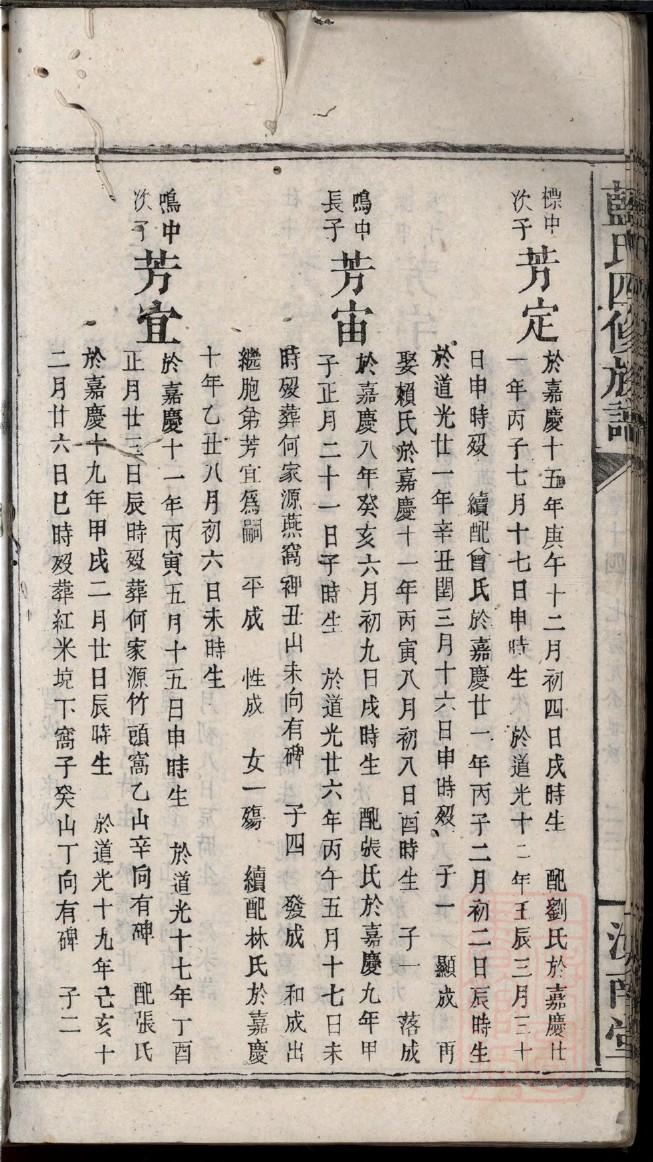 藍氏四修族譜
汝南堂
標中次子 芳定
於嘉慶十五年庚午十二月初四日戌時生 配劉氏於嘉慶廿
一年丙子七月十七日申時生 於道光十二年壬辰三月三十
日申時歿 續配曾氏於嘉慶廿一年丙子二月初二日辰時生
於道光廿一年辛丑閏三月十六日申時歿 子一 顯成 再
娶賴氏於嘉慶十一年丙寅八月初八日酉時生 子一 落成
鳴中長子 芳宙
於嘉慶八年癸亥六月初九日戌時生 配張氏於嘉慶九年甲
子正月二十一日子時生 於道光廿六年丙午五月十七日未
時歿葬何家源燕窩裨丑山未向有碑 子四 發成 和成出
繼胞弟芳宜爲嗣 平成 性成 女一殤 續配林氏於嘉慶
十年乙丑八月初六日未時生
鳴中次子 芳宜
於嘉慶十一年丙寅五月十五日申時生 於道光十七年丁酉
正月廿三日辰時歿葬何家源竹頭窩乙山辛向有碑 配張氏
於嘉慶十九年甲戌二月廿日辰時生 於道光十九年己亥十
二月廿六日巳時歿葬紅米境下窩子癸山丁向有碑 子二